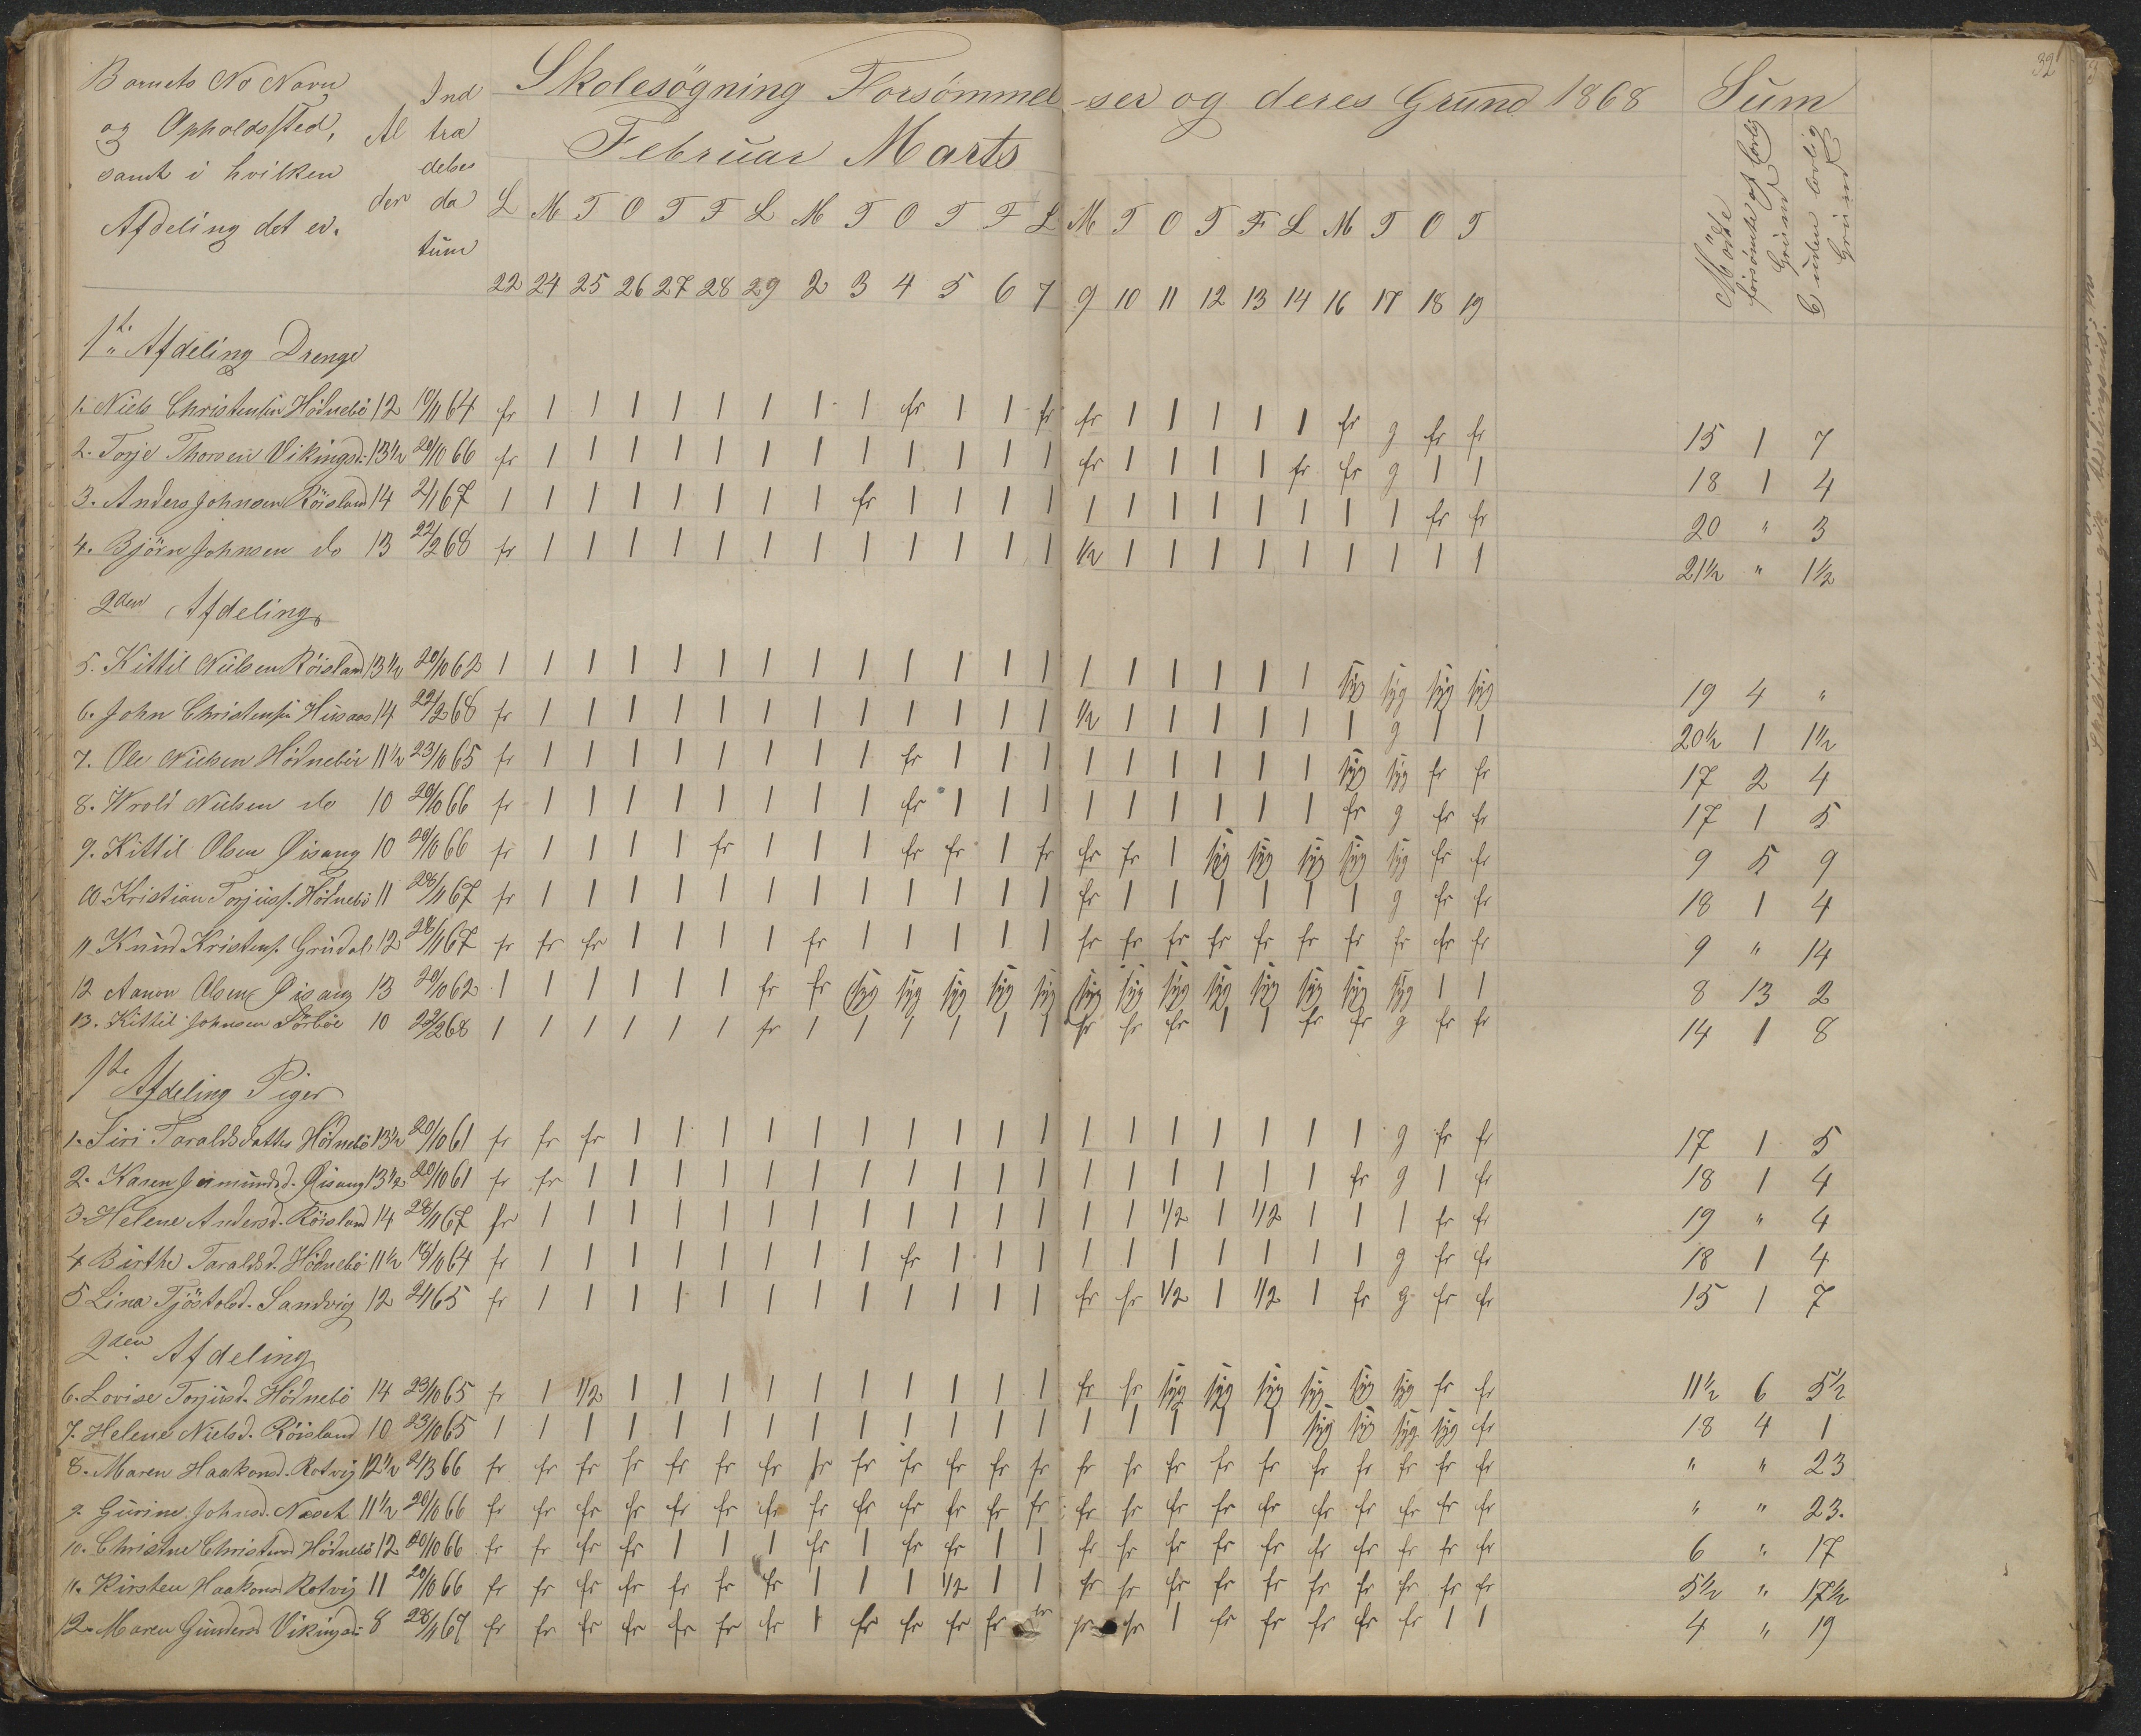 32
Barnets No Navn
og Opholdssted,
samt i hvilken
Afdeling det er.
Al
der
Ind
træ
delses
da
tum
Skolesögning Forsömmel-ser og deres Grund 1868
Februar Marts
Sum
Mödte
forsömte af lovlig Grund
uden lovlig Grund
L M T O T F L M T O T F L M T O T F L M T O T
22 24 25 26 27 28 29 2 3 4 5 6 7 9 10 11 12 13 14 16 17 18 19
1te Afdeling Drenge
1. Niels Christensen Hödnebö 12 19/11 64 fr 1 1 1 1 1 1 1 1 fr 1 1 fr fr 1 1 1 1 1 fr g fr fr 15 1 7
2. Torje Thorsen Vikingsd. 13½ 20/10 66 fr 1 1 1 1 1 1 1 1 1 1 1 1 fr 1 1 1 1 fr fr g 1 1 18 1 4
3. Anders Johnsen Röisland 14 2/1 67 1 1 1 1 1 1 1 1 fr 1 1 1 1 1 1 1 1 1 1 1 1 fr fr 20 " 3
4. Björn Johnsen do 13 22/2 68 fr 1 1 1 1 1 1 1 1 1 1 1 1 ½ 1 1 1 1 1 1 1 1 1 21½ " 1½
2den Afdeling
5. Kittil Nielsen Röisland 13½ 20/10 62 1 1 1 1 1 1 1 1 1 1 1 1 1 1 1 1 1 1 1 syg syg syg syg 19 4 "
6. John Christensen Husaas 14 22/2 68 fr 1 1 1 1 1 1 1 1 1 1 1 1 ½ 1 1 1 1 1 1 g 1 1 20½ 1 1½
7. Ole Nielsen Hödneböe 11½ 23/10 65 fr 1 1 1 1 1 1 1 1 fr 1 1 1 1 1 1 1 1 1 syg syg fr fr 17 2 4
8. Wrold Nielsen do 10 20/10 66 fr 1 1 1 1 1 1 1 1 fr 1 1 1 1 1 1 1 1 1 fr g fr fr 17 1 5
9. Kittil Olsen Øisang 10 20/10 66 fr 1 1 1 1 fr 1 1 1 fr fr 1 fr fr fr 1 syg syg syg syg syg fr fr 9 5 9
10. Kristian Torjusf. Hödnebö 11 28/11 67 fr 1 1 1 1 1 1 1 1 1 1 1 1 fr 1 1 1 1 1 1 g fr fr 18 1 4
11 Knud Kristensf. Grudal. 12 28/11 67 fr fr fr 1 1 1 1 fr 1 1 1 1 1 fr fr fr fr fr fr fr fr fr fr 9 " 14
12 Aanon Olsen Øisang 13 20/10 62 1 1 1 1 1 1 fr fr syg syg syg syg syg syg syg syg syg syg syg syg syg 1 1 8 13 2
13. Kittil Johnsen Sörböe 10 22/2 68 1 1 1 1 1 1 fr 1 1 1 1 1 1 fr fr fr 1 1 fr fr g fr fr 14 1 8
1te Afdeling Piger
1. Siri Taraldsdatter Hödnebö 13½ 20/10 61 fr fr fr 1 1 1 1 1 1 1 1 1 1 1 1 1 1 1 1 1 g fr fr 17 1 5
2. Karen Jermundsd. Øisang 13½ 20/10 61 fr fr 1 1 1 1 1 1 1 1 1 1 1 1 1 1 1 1 1 fr g 1 fr 18 1 4
3. Helene Andersd. Röisland 14 28/11 67 fr 1 1 1 1 1 1 1 1 1 1 1 1 1 1 1/2 1 1/2 1 1 1 fr fr 19 " 4
4 Birthe Taraldsd. Hödnebö 11½ 18/10 64 fr 1 1 1 1 1 1 1 1 fr 1 1 1 1 1 1 1 1 1 1 g fr fr 18 1 4
5 Lina Tjöstolsd. Sandvig 12 2/1 65 fr 1 1 1 1 1 1 1 1 1 1 1 1 fr fr 1/2 1 1/2 1 fr g fr fr 15 1 7
2den Afdeling
6. Lovise Torjusd. Hödnebö 14 23/10 65 fr 1 1/2 1 1 1 1 1 1 1 1 1 1 fr fr syg syg syg syg syg syg fr fr 11½ 6 5½
7. Helene Nielsd. Röisland 10 23/10 65 1 1 1 1 1 1 1 1 1 1 1 1 1 1 1 1 1 1 syg syg syg syg fr 18 4 1
8. Maren Haakonsd. Rotvig 12½ 2/3 66 fr fr fr fr fr fr fr fr fr fr fr fr fr fr fr fr fr fr fr fr fr fr fr " " 23
9. Gurine Johnsd. Næset 11½ 20/10 66 fr fr fr fr fr fr fr fr fr fr fr fr fr fr fr fr fr fr fr fr fr fr fr " " 23.
10. Christne Christensd Hödnebö 12 20/10 66 fr fr fr fr 1 1 1 fr 1 fr fr 1 1 fr fr fr fr fr fr fr fr fr fr 6 " 17
11. Kirsten Haakonsd Rotvig 11 20/10 66 fr fr fr fr fr fr fr 1 1 1 1/2 1 1 fr fr fr fr fr fr fr fr fr fr 5½ " 17½
12. Maren Gundersd Vikingsd. 8 28/11 67 fr fr fr fr fr fr fr 1 fr fr fr fr fr fr fr 1 fr fr fr fr fr 1 1 4 " 19